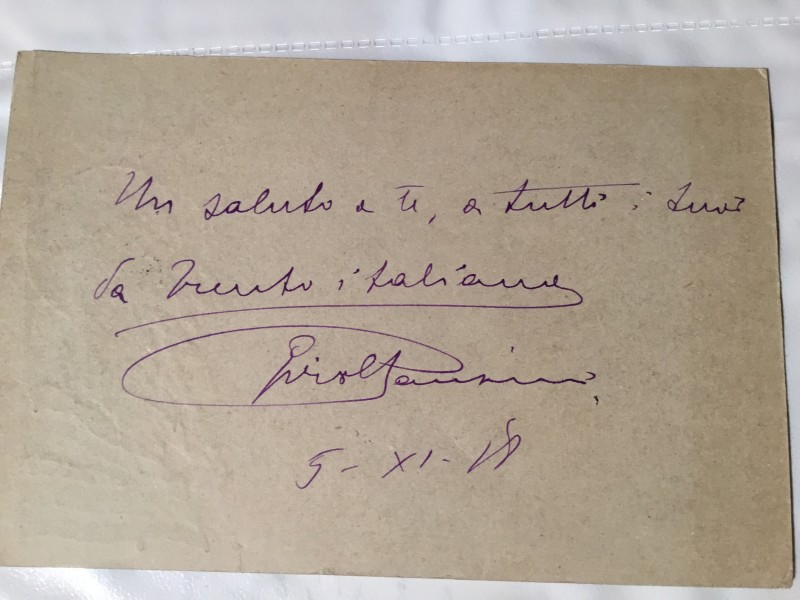 Un saluto a te, a tutti i tuoi
da Trento italiana
5-XI-18